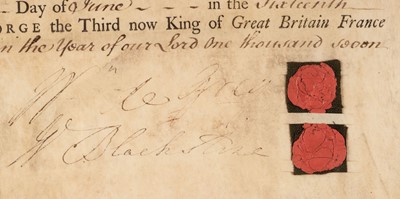 Day of June - - - in the Sixteenth
ORGE the Third now King of Great Britain France
in the Year of our Lord One thousand seven
Wm de Grey
W Blackstone